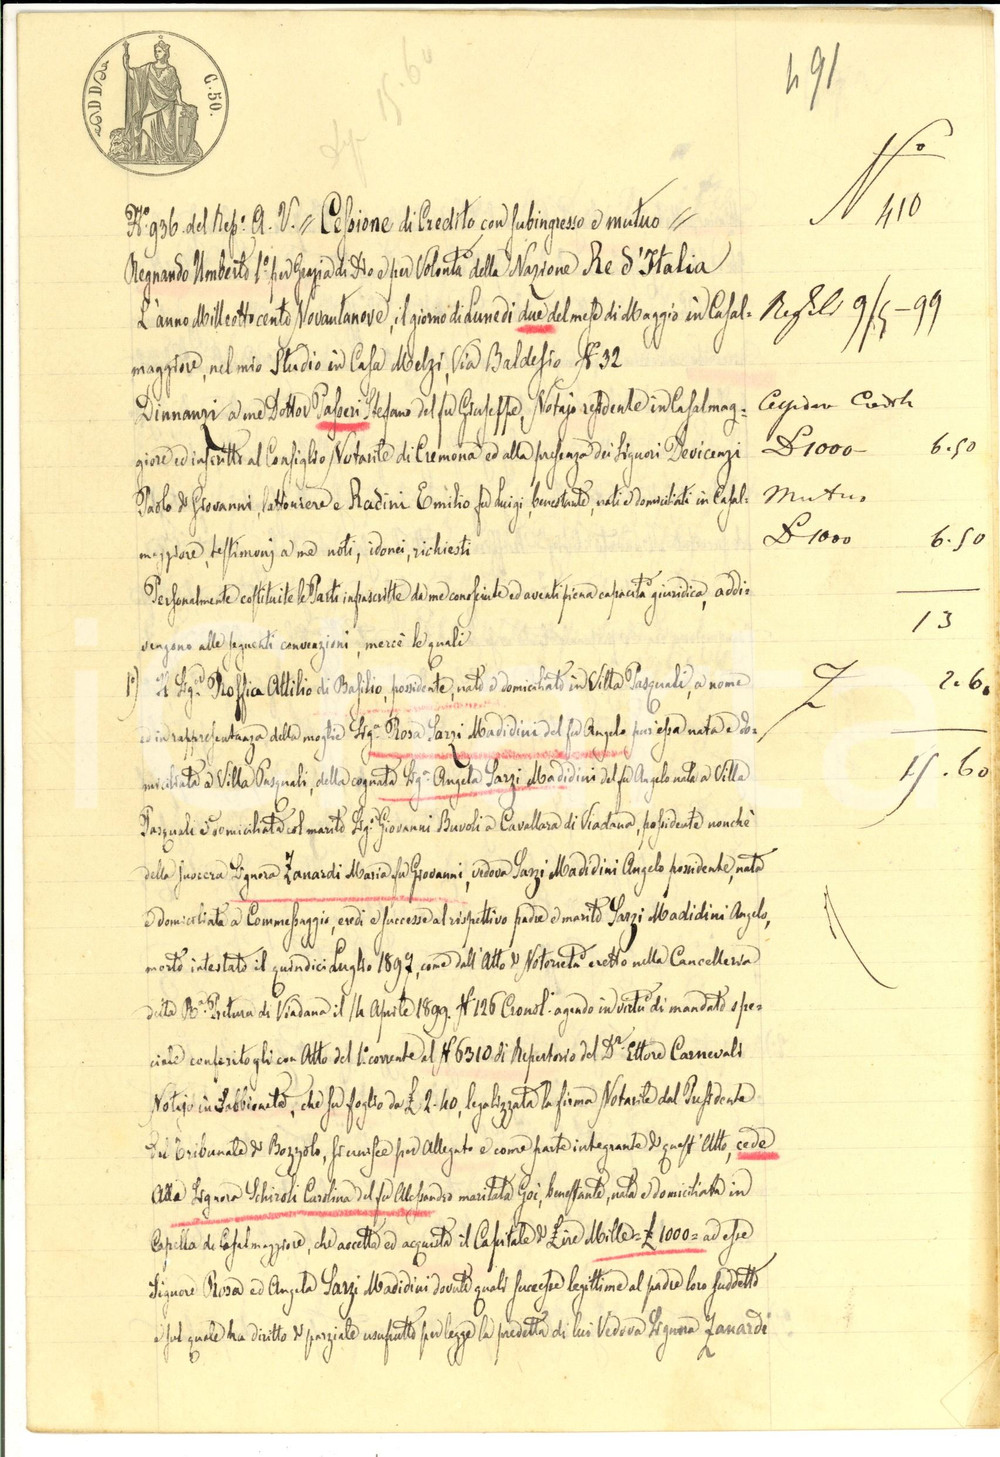 491
C. 50.
N.º 410
N.º 936 del Rep.º A. V. // Cessione di Credito con subingresso e mutuo //
Regnando Umberto 1.º per Grazia di Dio e per Volontà della Nazione Re d'Italia
L'anno Milleottocento Novantanove, il giorno di Lunedì due del mese di Maggio in Casal=
9/5-99
maggiore, nel mio Studio in Casa Melzi, Via Baldesio N. 32
Dinnanzi a me Dottor Passeri Stefano del fu Giuseppe, Notajo residente in Casalmag=
giore ed inscritto al Consiglio Notarile di Cremona ed alla presenza dei Signori Devicenzi
£ 1000- 6.50
Paolo di Giovanni, fattoriere e Radini Emilio fu Luigi, benestante, nati e domiciliati in Casal=
Mutuo
maggiore, testimonj a me noti, idonei, richiesti
£ 1000 6.50
Personalmente costituite le Parti infrascritte da me conosciute ed aventi piena capacità giuridica, addi=
13
vengono alle seguenti convenzioni, mercè le quali
1º) Il Sig.r Proffica Attilio di Basilio, possidente, nato e domiciliato in Villa Pasquali, a nome
2.60
ed in rappresentanza della moglie Sig.a Rosa Sarzi Madidini del fu Angelo pur essa nata e do=
miciliata a Villa Pasquali, della cognata Sig.a Angela Sarzi Madidini del fu Angelo nata a Villa
15.60
Pasquali e domiciliata col marito Sig.r Giovanni Buvoli a Cavallara di Viadana, possidente nonchè
della suocera Signora Zanardi Maria fu Giovanni, vedova Sarzi Madidini Angelo possidente, nata
e domiciliata a Commessaggio, eredi e successe al rispettivo padre e marito Sarzi Madidini Angelo,
morto intestato il quindici Luglio 1897, come dall'Atto di Notorietà eretto nella Cancelleria
della R.a Pretura di Viadana il 14 Aprile 1899 N.º 126 Cronol. agendo in virtù di mandato spe=
ciale conferitogli con Atto del 1.º corrente al N.º 6310 di Repertorio del D.r Ettore Carnevali
Notajo in Sabbioneta, che su foglio da £ 2.40, legalizzata la firma Notarile dal Presidente
del Tribunale di Bozzolo, si unisce per Allegato e come parte integrante di quest'Atto, cede
Alla Signora Schiroli Carolina del fu Alessandro maritata Goi, benestante, nata e domiciliata in
Capella di Casalmaggiore, che accetta ed acquista il Capitale di Lire Mille = £ 1000 = ad esse
Signore Rosa ed Angela Sarzi Madidini dovute quali successe legittime al padre loro suddetto
e sul quale ha diritto di parziale usufrutto per legge la predetta di lui Vedova Signora Zanardi